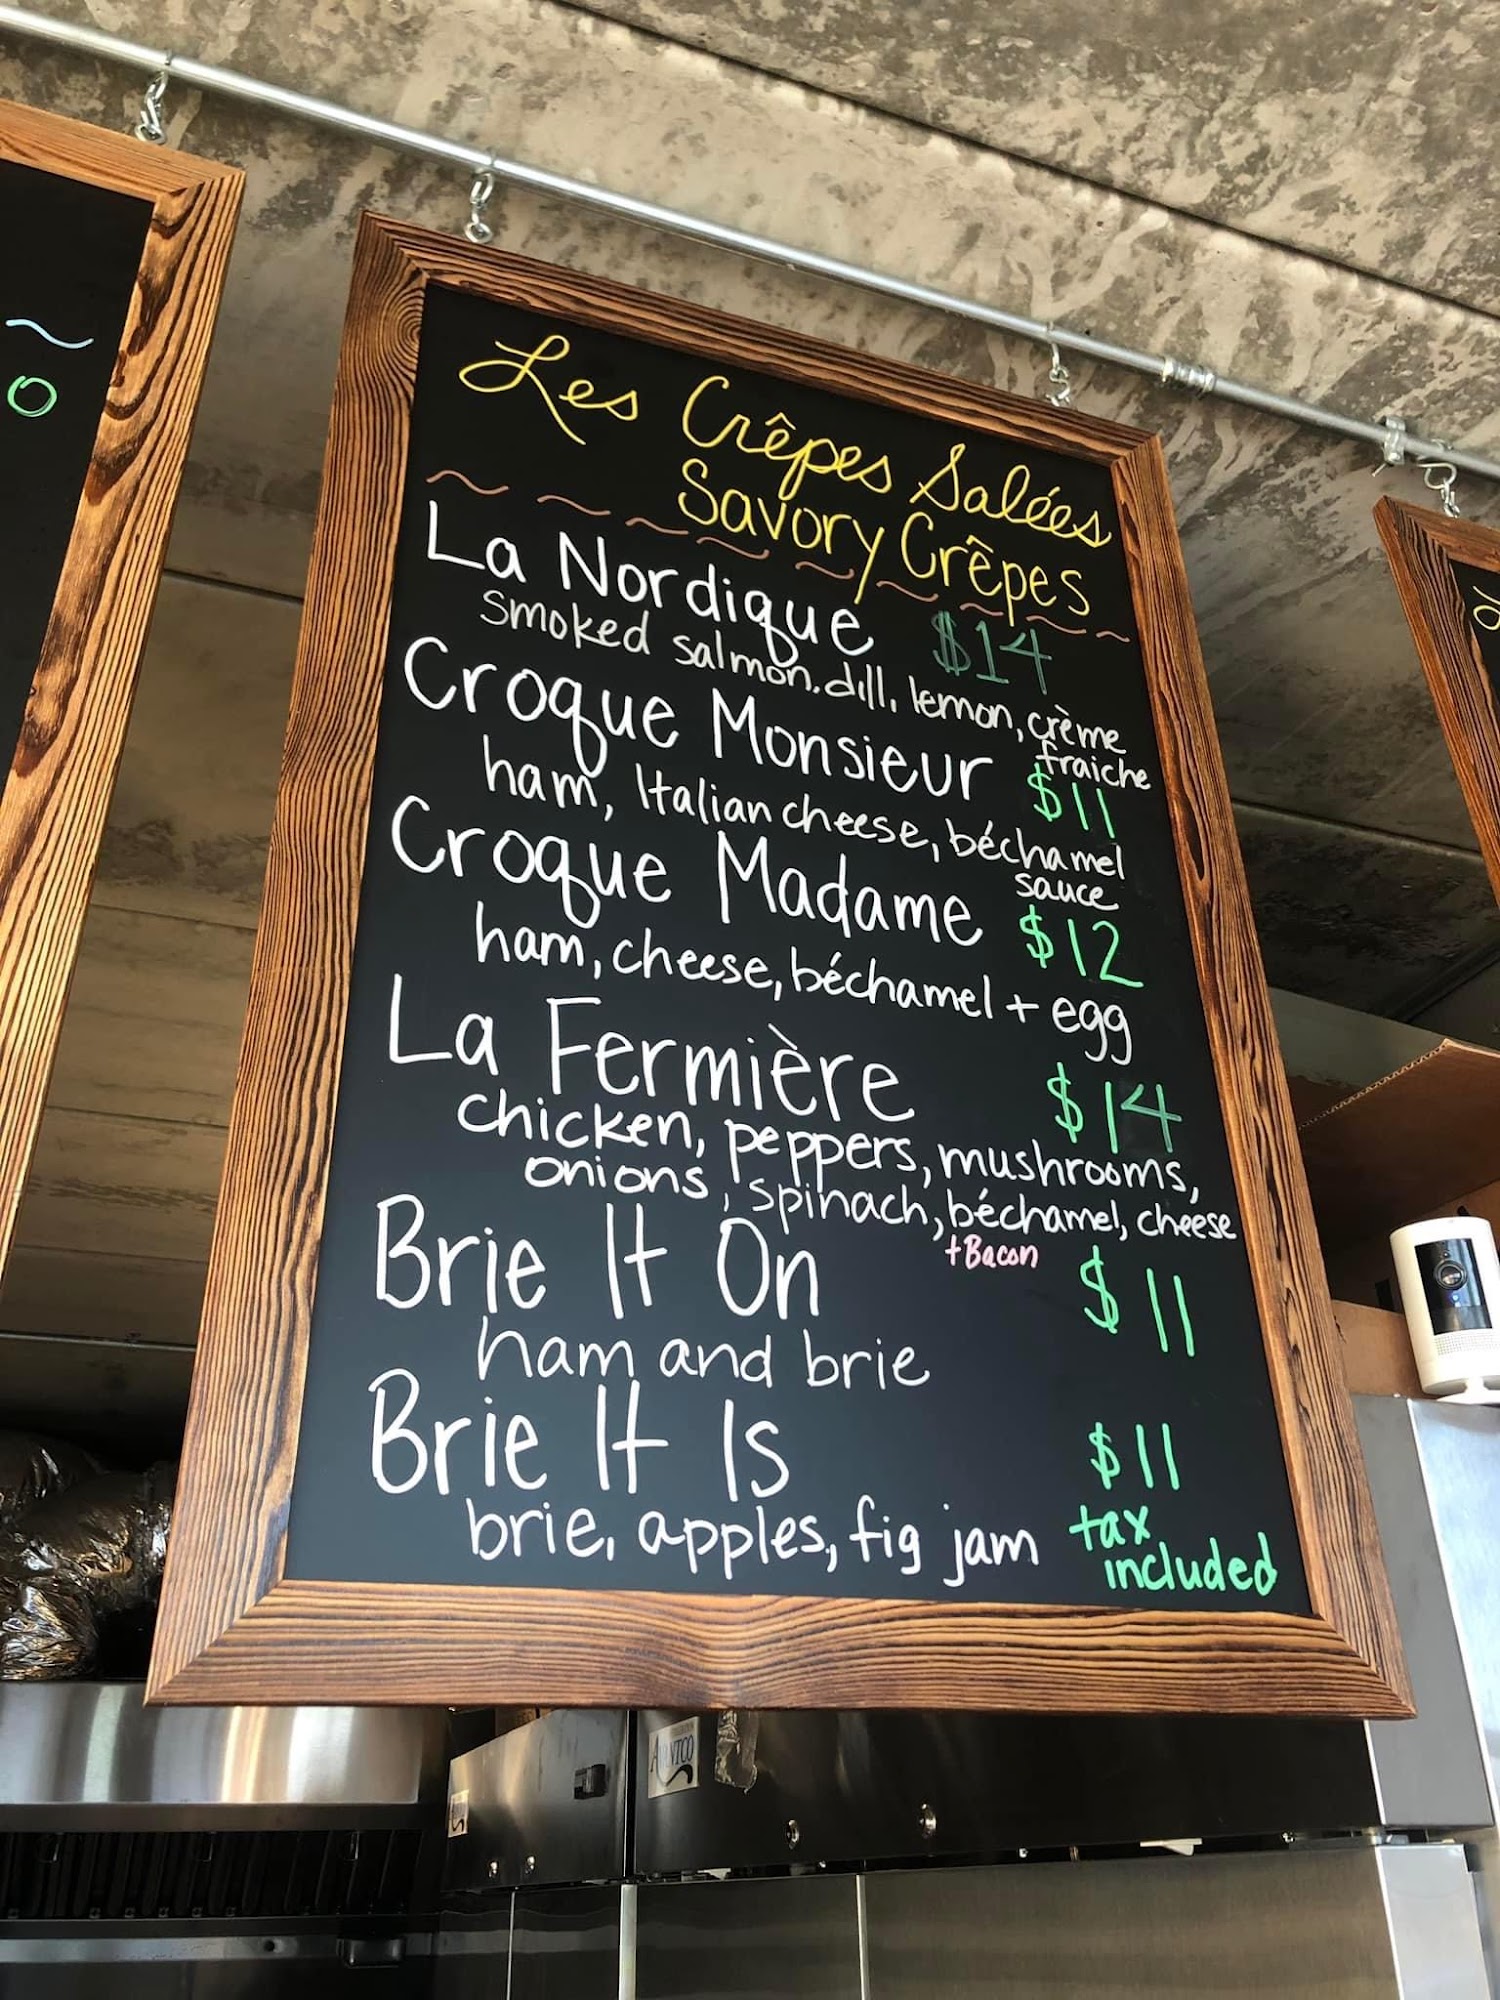 Les Crêpes Salées
Savory Crêpes
La Nordique $14
smoked salmon, dill, lemon, crème
fraiche
Croque Monsieur $11
ham, Italian cheese, béchamel
sauce
Croque Madame $12
ham, cheese, béchamel + egg
La Fermière $14
chicken, peppers, mushrooms,
onions, spinach, béchamel, cheese
+ Bacon
Brie It On $11
ham and brie
Brie It Is $11
brie, apples, fig jam
tax
included